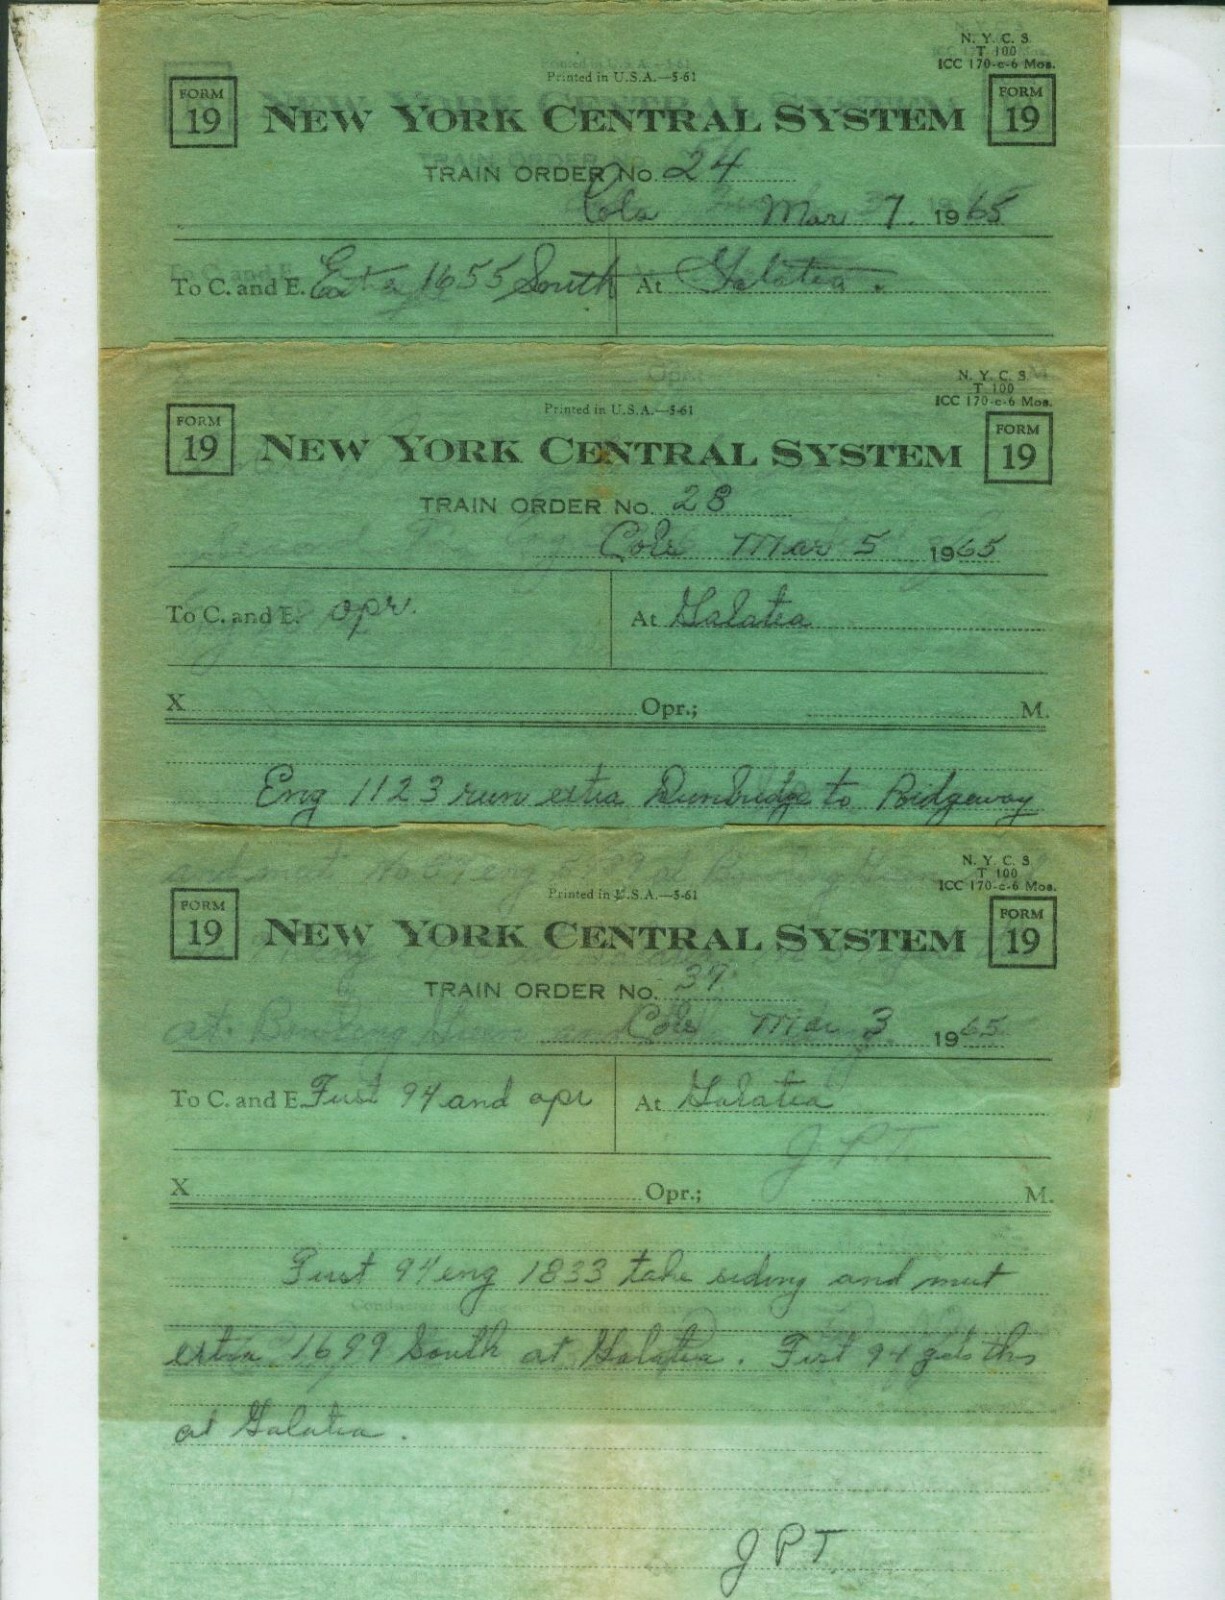 N. Y. C. S.
T 100
ICC 170-c-6 Mos.
Printed in U.S.A.—5-61
FORM 19 NEW YORK CENTRAL SYSTEM FORM 19
TRAIN ORDER No. 24
Cols Mar 7. 1965
To C. and E. Extra 1655 South At Galatea.
N. Y. C. S.
T 100
ICC 170-c-6 Mos.
Printed in U.S.A.—5-61
FORM 19 NEW YORK CENTRAL SYSTEM FORM 19
TRAIN ORDER No. 28
Cols Mar 5 1965
To C. and E. opr. At Galatea
X Opr.; M.
Eng 1123 run extra Dunbridge to Ridgeway
N. Y. C. S.
T 100
ICC 170-c-6 Mos.
Printed in U.S.A.—5-61
FORM 19 NEW YORK CENTRAL SYSTEM FORM 19
TRAIN ORDER No. 37
Cols Mar 3 1965
To C. and E. First 94 and opr At Galatea
JPT.
X Opr.; M.
First 94 eng 1833 take siding and meet
extra 1699 South at Galatea. First 94 gets this
at Galatea.
JPT